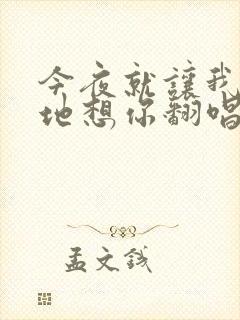 今夜就讓我
地想你翻唱
孟文钱